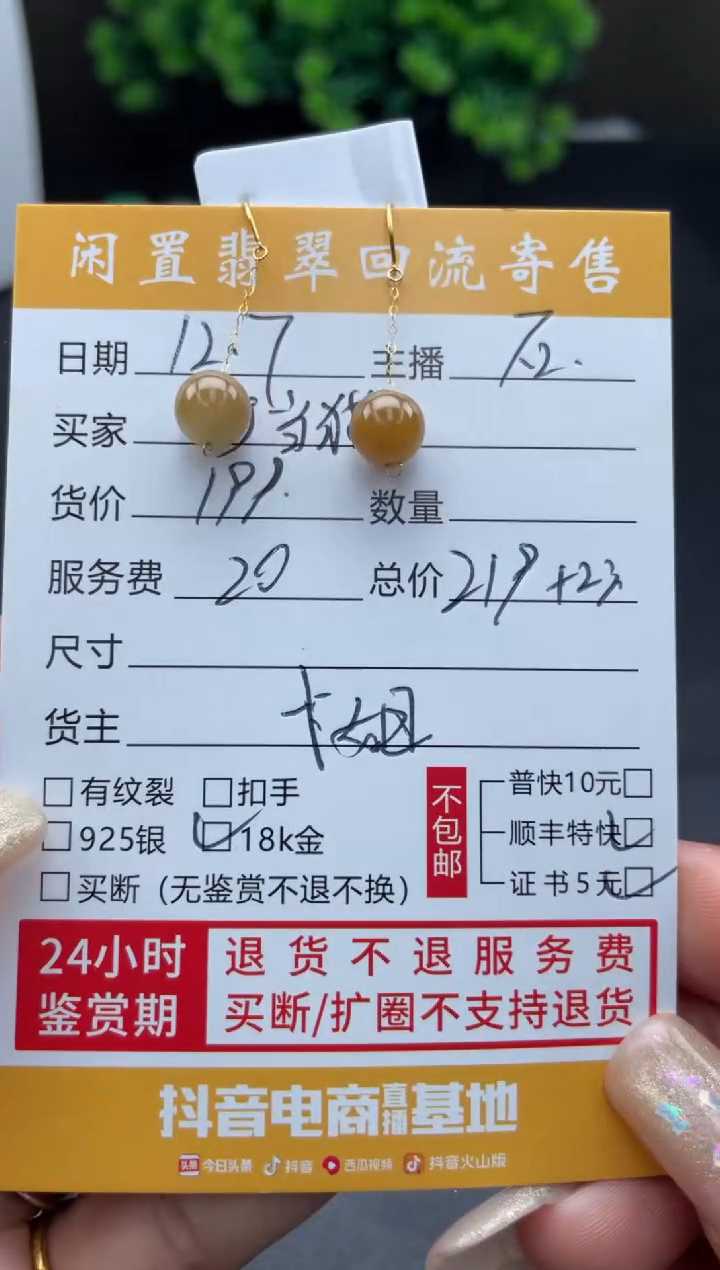 闲置翡翠回流寄售
日期 12.7 主播
买家
货价 199. 数量
服务费 20 总价 219 +23
尺寸
货主
有纹裂 扣手 普快10元
925银 18k金 顺丰特快
买断（无鉴赏不退不换） 证书5元
不包邮
24小时 退货不退服务费
鉴赏期 买断/扩圈不支持退货
抖音电商直播基地
头条 今日头条 抖音 西瓜视频 抖音火山版